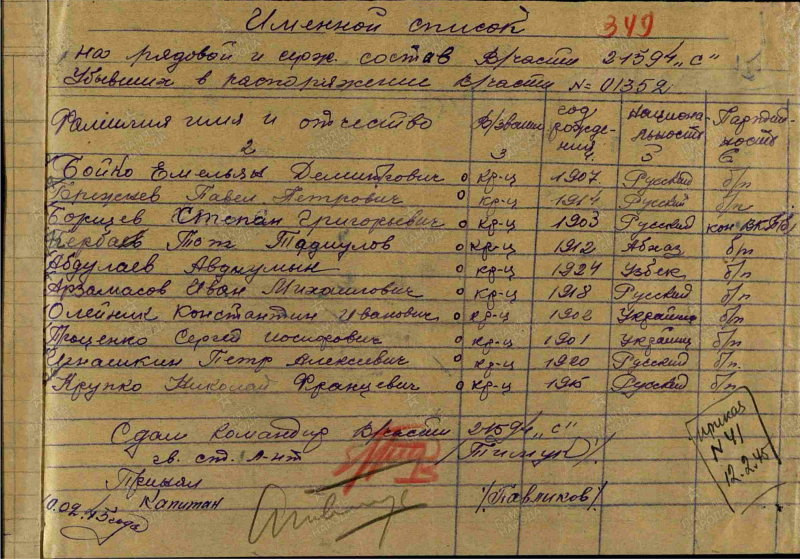 Именной список 349
на рядовой и серж. состав В/части 21594 „С“
Убывших в распоряжение В/части № 01352
Фамилия имя и отчество В/звание год рождения Национальность Партийность
2 3 4 5 6
Бойко Емельян Дмитрович кр-ц 1907 Русский б/п
Павел Петрович кр-ц 1914 Русский б/п
Борщев Степан Григорьевич кр-ц 1903 Русский
кр-ц 1912 Абхаз б/п
Абдулаев кр-ц 1924 Узбек б/п
Арзамасов Иван Михаилович кр-ц 1918 Русский б/п
Олейник Константин Иванович кр-ц 1902 Украинц б/п
Проценко Сергей Иосифович кр-ц 1901 Украинц б/п
Петр Алексеевич кр-ц 1920 Русский б/п
Крупко Николай Францевич кр-ц Русский б/п
Сдал Командир В/части 21594 „С“
гв. ст. л-нт
Принял
Капитан /Павликов/
10.02.45 года
Приказ
N 41
12.2.45